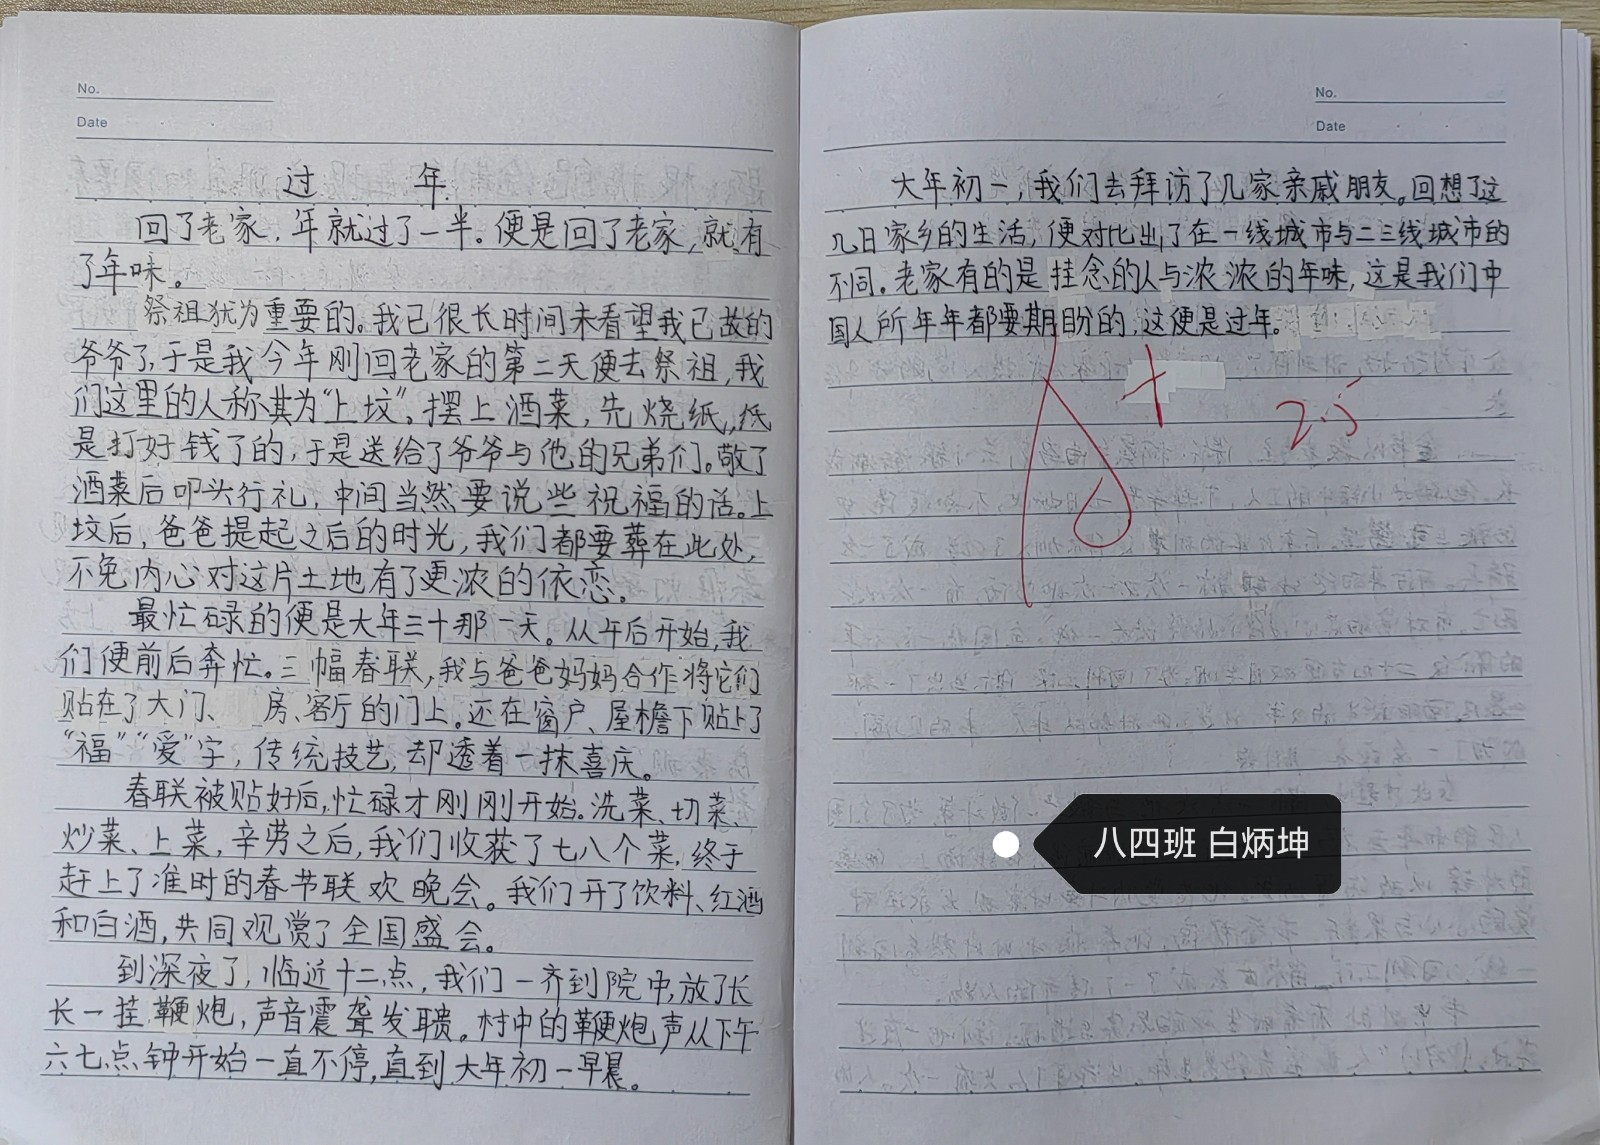 No.
Date
过 年
回了老家，年就过了一半。便是回了老家，就有
了年味。
祭祖犹为重要的。我已很长时间未看望我已故的
爷爷了，于是我今年刚回老家的第二天便去祭祖，我
们这里的人称其为“上坟”。摆上酒菜，先烧纸，纸
是打好钱了的，于是送给了爷爷与他的兄弟们。敬了
酒菜后叩头行礼，中间当然要说些祝福的话。上
坟后，爸爸提起之后的时光，我们都要葬在此处，
不免内心对这片土地有了更浓的依恋。
最忙碌的便是大年三十那一天。从午后开始，我
们便前后奔忙。三幅春联，我与爸爸妈妈合作将它们
贴在了大门、 房、客厅的门上。还在窗户、屋檐下贴上了
“福”“爱”字，传统技艺，却透着一抹喜庆。
春联被贴好后，忙碌才刚刚开始。洗菜、切菜、
炒菜、上菜，辛劳之后，我们收获了七八个菜，终于
赶上了准时的春节联欢晚会。我们开了饮料、红酒
和白酒，共同观赏了全国盛会。
到深夜了，临近十二点，我们一齐到院中，放了长
长一挂鞭炮，声音震聋发聩。村中的鞭炮声从下午
六七点钟开始一直不停，直到大年初一早晨。
No.
Date
大年初一，我们去拜访了几家亲戚朋友。回想了这
几日家乡的生活，便对比出了在一线城市与二三线城市的
不同。老家有的是挂念的人与浓浓的年味，这是我们中
国人所年年都要期盼的，这便是过年。
25
八四班 白炳坤